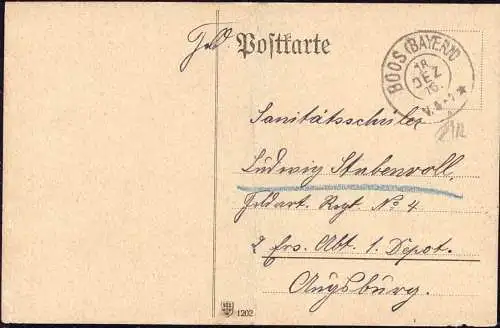 Postkarte
BOOS (BAYERN)
18
DEZ
16.
Sanitätsschüler
Ludwig Stubenvoll
Feldart. Regt. No 4
2 Ers. Abt. 1. Depot.
Augsburg.
1202